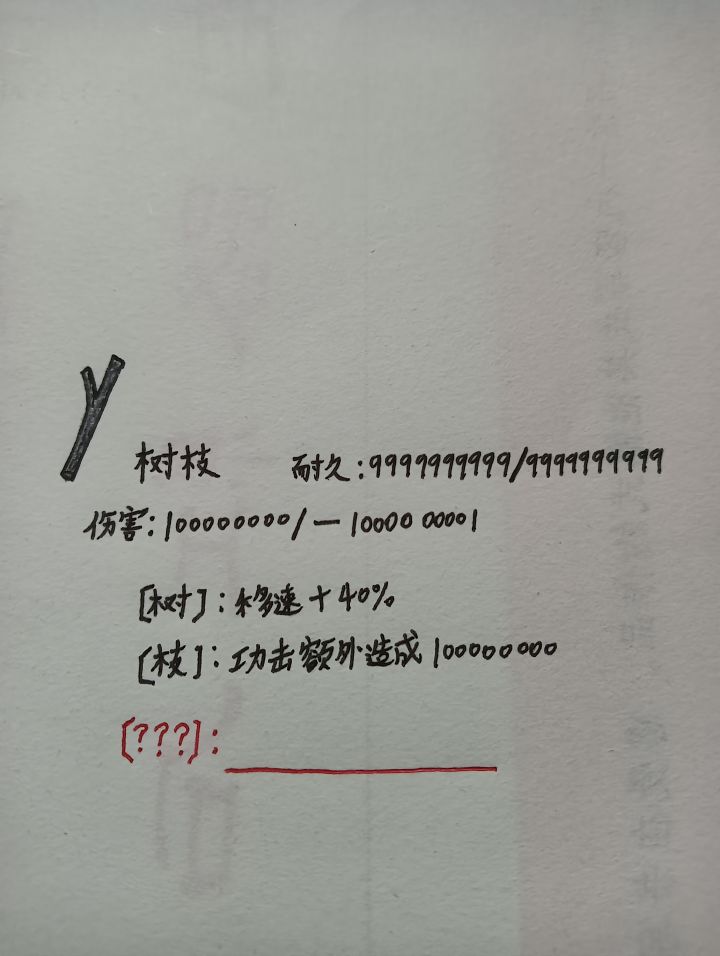 树枝 耐久:9999999999/9999999999
伤害:100000000/—100000001
[树]:移速+40%
[枝]:功击额外造成100000000
[???]: